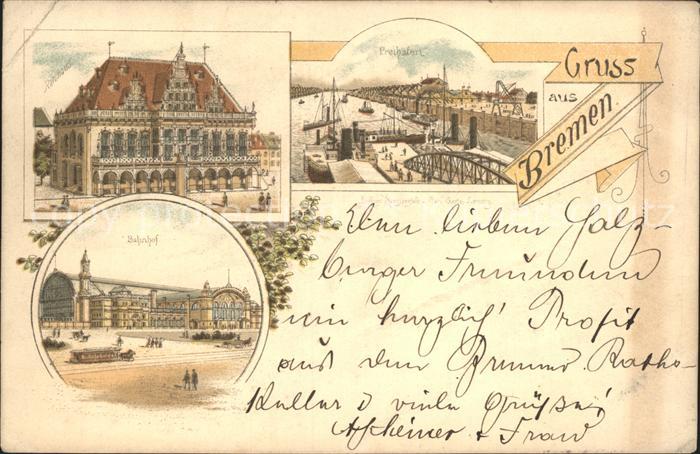 Rathhaus
Freihafen
Gruss
aus
Bremen.
Bahnhof
Den lieben Salz-
burger Freunden
ein herzlich' Prosit
aus dem Bremer Raths-
keller & viele Grüsse!
+ Frau